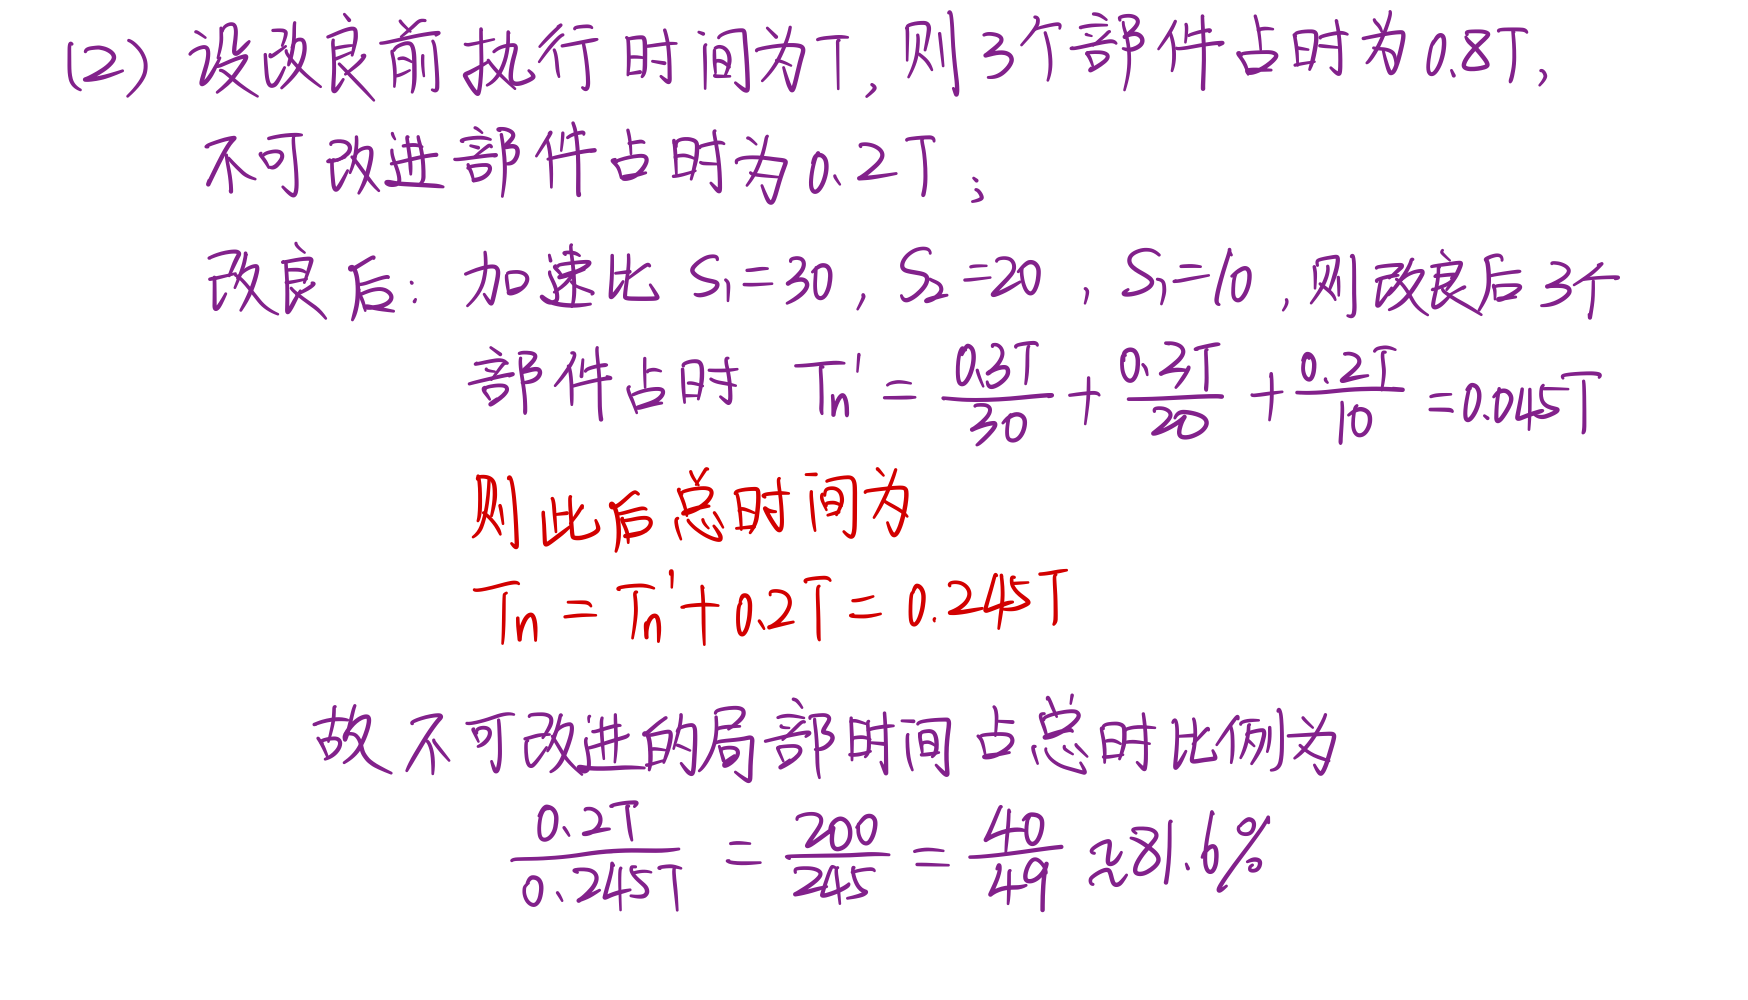 (2) 设改良前执行时间为T, 则3个部件占时为0.8T,
不可改进部件占时为0.2T;
改良后: 加速比 S₁=30, S₂=20, S₁=10, 则改良后3个
部件占时 Tn' = 0.3T/30 + 0.3T/20 + 0.2T/10 = 0.045T
则此后总时间为
Tn = Tn' + 0.2T = 0.245T
故不可改进的局部时间占总时比例为
0.2T/0.245T = 200/245 = 40/49 ≈ 81.6%